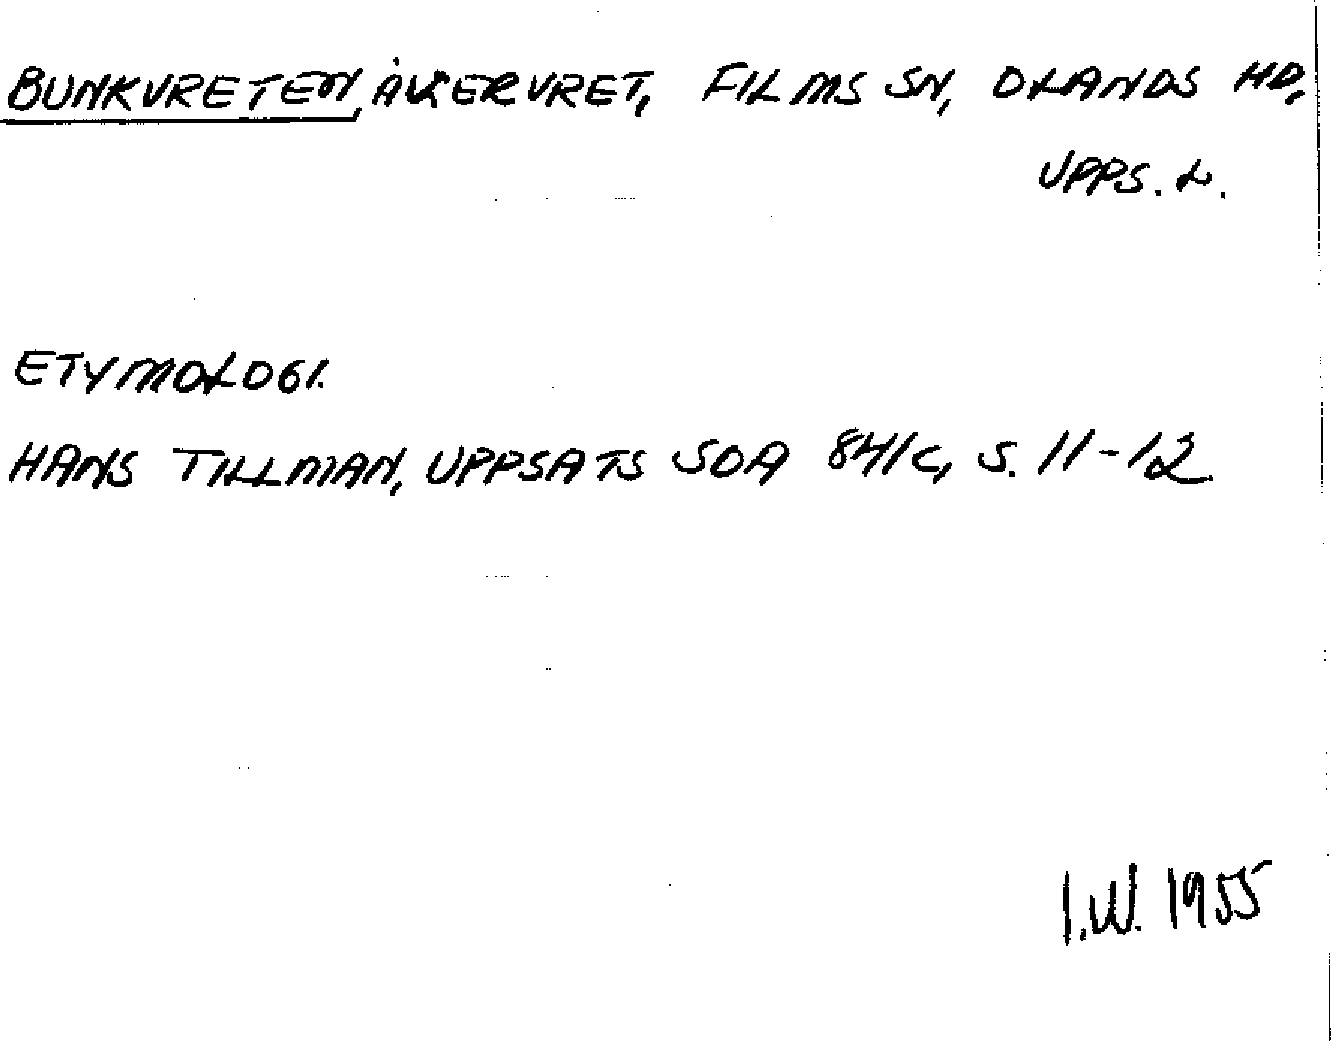 BUNKVRETEN, ÅKERVRET, FILMS SN, OLANDS HD,
UPPS. L.
ETYMOLOGI.
HANS TILLMAN, UPPSATS SOA 841c, S. 11-12.
I.W. 1955